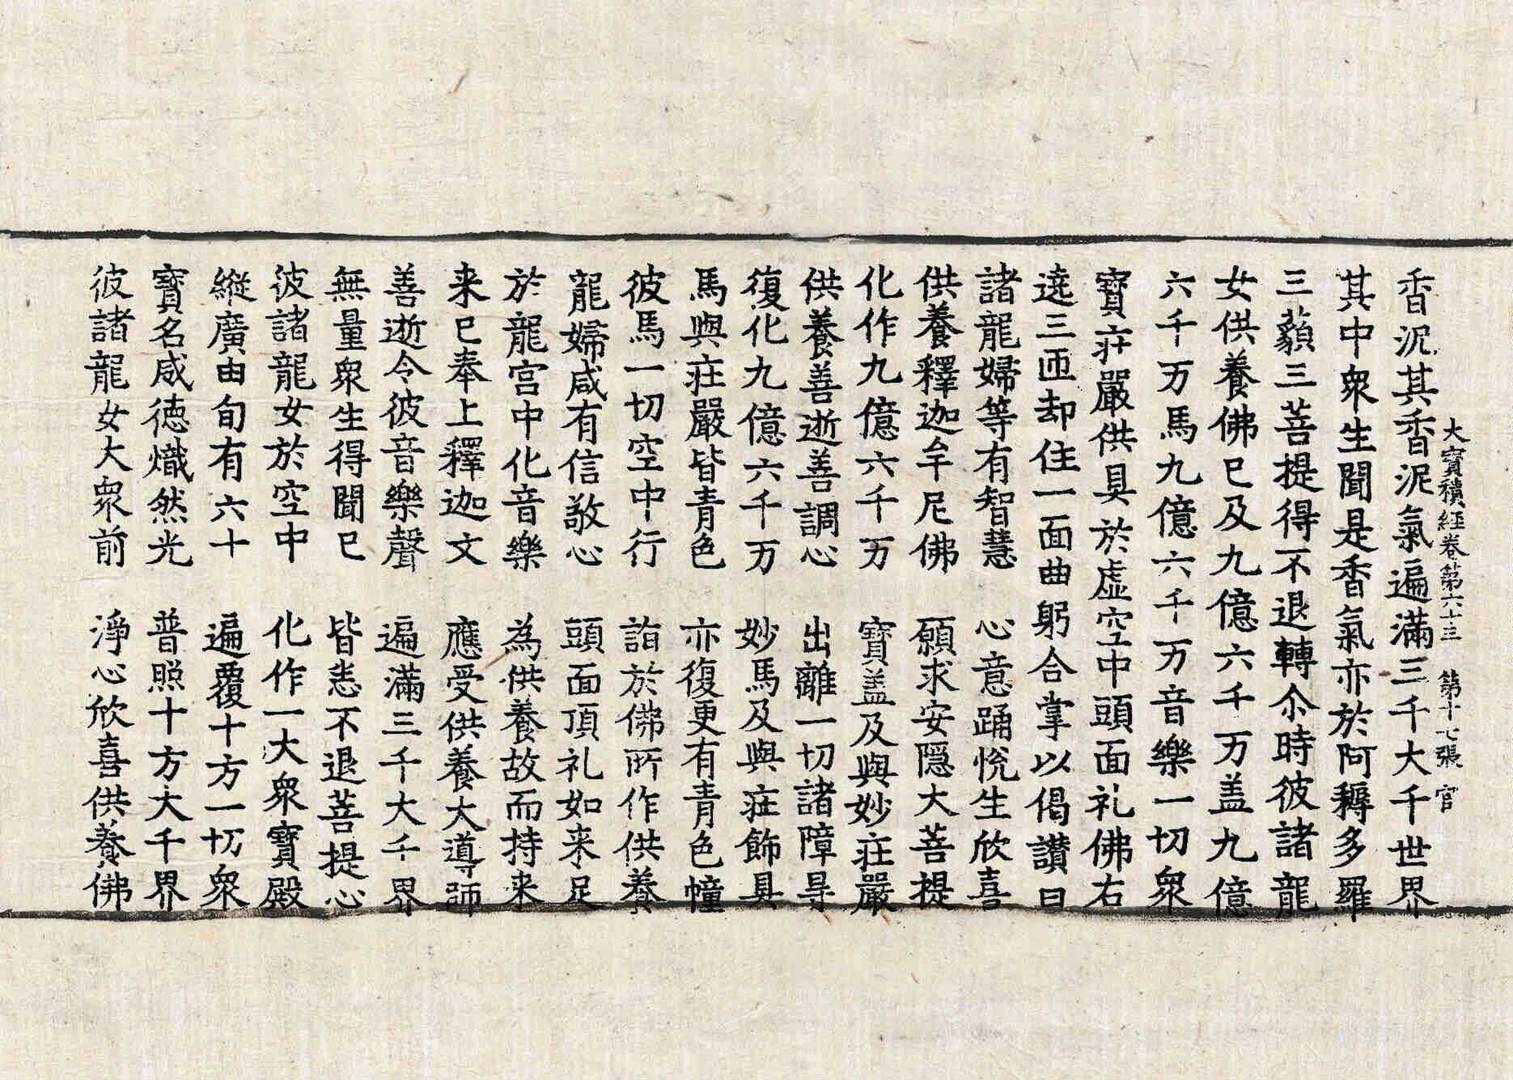 大寶積經卷第六十三　第十七張　官
香泥其香泥氣遍滿三千大千世界
其中衆生聞是香氣亦於阿耨多羅
三藐三菩提得不退轉尒時彼諸龍
女供養佛已及九億六千万盖九億
六千万馬九億六千万音樂一切衆
寶莊嚴供具於虛空中頭面礼佛右
遶三匝却住一面曲躬合掌以偈讃曰
諸龍婦等有智慧　心意踊悅生欣喜
供養釋迦牟尼佛　願求安隱大菩提
化作九億六千万　寶盖及與妙莊嚴
供養善逝善調心　出離一切諸障㝵
復化九億六千万　妙馬及與莊飾具
馬與莊嚴皆青色　亦復更有青色幢
彼馬一切空中行　詣於佛所作供養
龍婦咸有信敬心　頭面頂礼如来足
於龍宮中化音樂　為供養故而持来
来已奉上釋迦文　應受供養大導師
善逝令彼音樂聲　遍滿三千大千界
無量衆生得聞已　皆悉不退菩提心
彼諸龍女於空中　化作一大衆寶殿
縱廣由旬有六十　遍覆十方一切衆
寶名咸徳熾然光　普照十方大千界
彼諸龍女大衆前　淨心欣喜供養佛